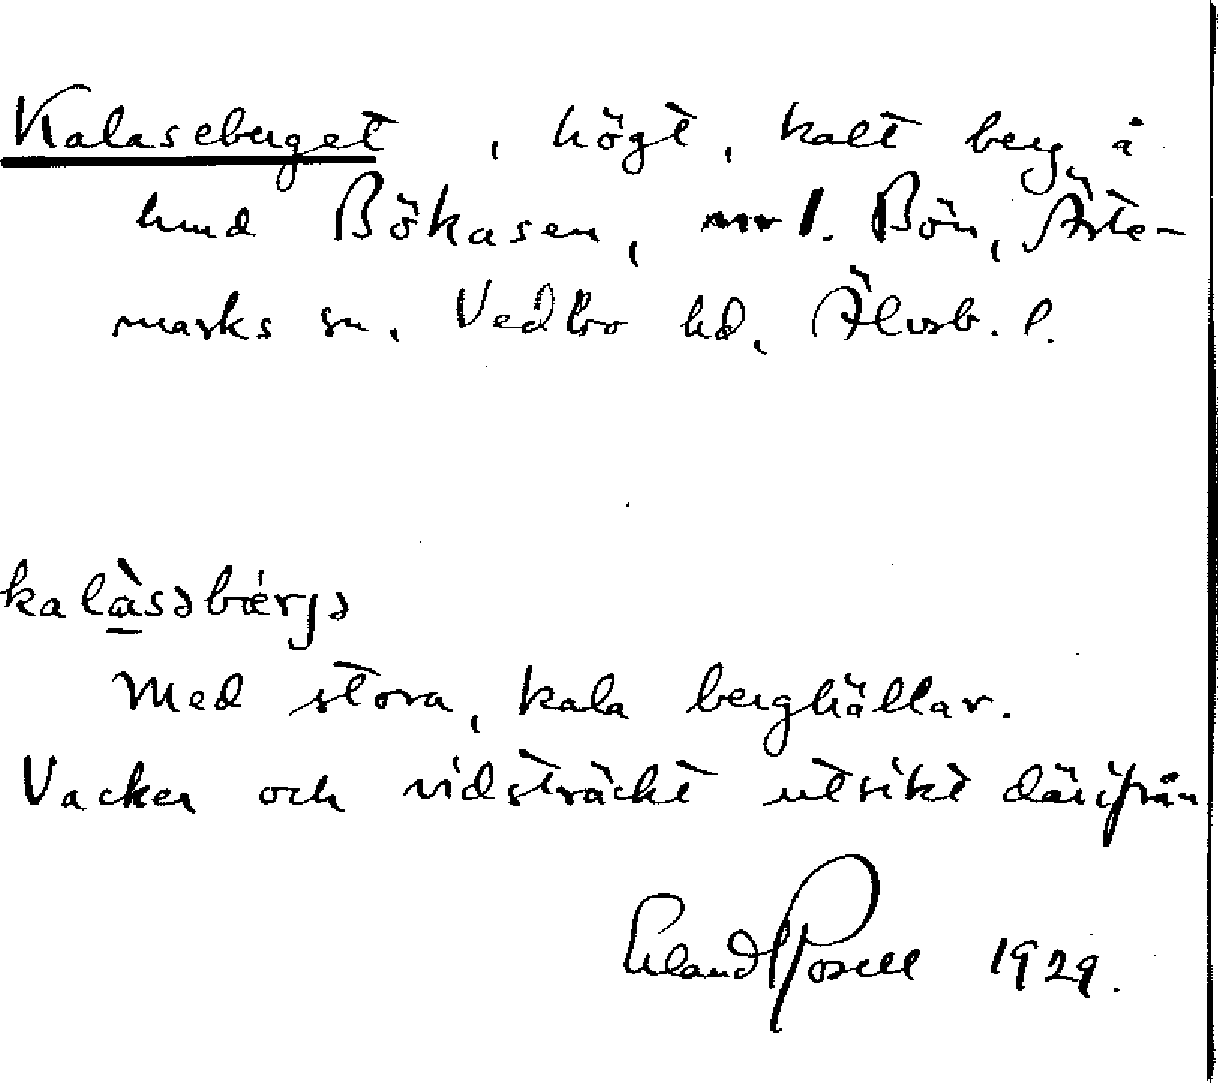 Kalaseberget, högt, kalt berg å
hmd Bökasen, nr 1. Bön, Ärte-
marks sn, Vedbo hd, Älvsb. l.
kalàsəbǽrjə
Med stora, kala berghällar.
Vacker och vidsträckt utsikt därifrån
Erland Rosell 1929.